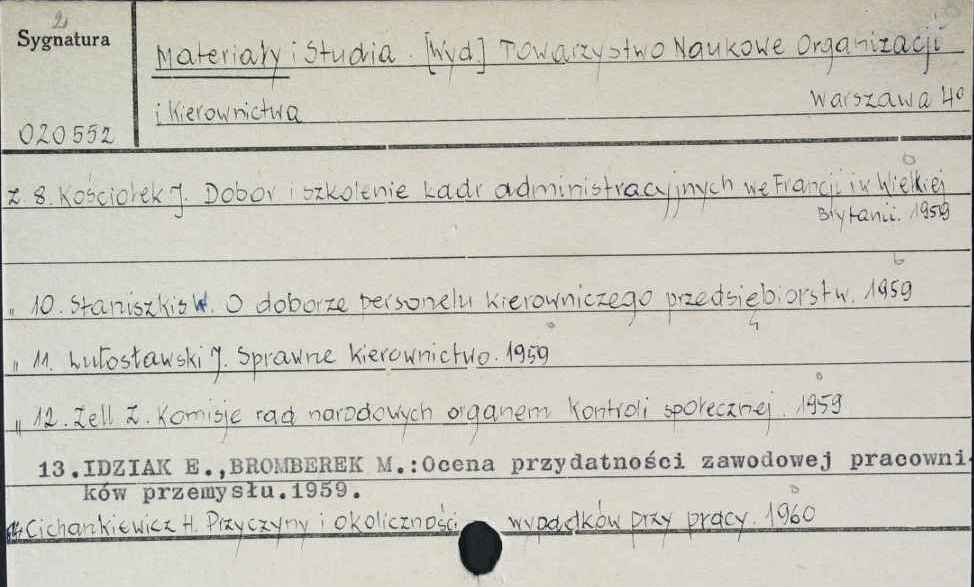 2
Sygnatura
Materiały i Studia. [Wyd] Towarzystwo Naukowe Organizacji
i Kierownictwa
Warszawa 4º
020552
Z. 8. Kościołek J. Dobór i szkolenie kadr administracyjnych we Francji i w Wielkiej
Brytanii. 1959
" 10. Staniszkis W. O doborze personelu kierowniczego przedsiębiorstw. 1959
" 11. Lutosławski J. Sprawne kierownictwo. 1959
" 12. Zell Z. Komisje rad narodowych organem kontroli społecznej. 1959
13. IDZIAK E., BROMBEREK M.: Ocena przydatności zawodowej pracowni-
ków przemysłu. 1959.
14. Cichankiewicz H. Przyczyny i okoliczności wypadków przy pracy. 1960